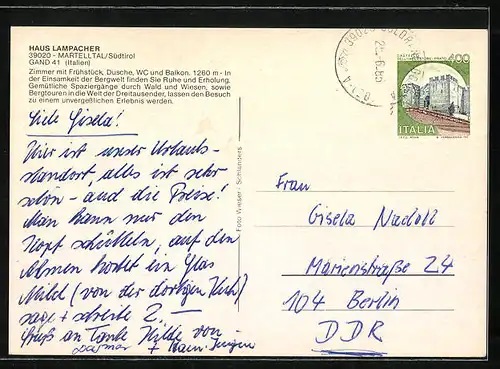 HAUS LAMPACHER
39020 - MARTELLTAL/Südtirol
GAND 41 (Italien)
Zimmer mit Frühstück, Dusche, WC und Balkon. 1260 m - In
der Einsamkeit der Bergwelt finden Sie Ruhe und Erholung.
Gemütliche Spaziergänge durch Wald und Wiesen, sowie
Bergtouren in die Welt der Dreitausender, lassen den Besuch
zu einem unvergeßlichen Erlebnis werden.
Liebe Gisela!
Hier ist unser Urlaubs-
standort, alles ist sehr
schön - auch die Preise!
Man kann nur den
Kopf schütteln, auf den
Almen kostet ein Glas
Milch (von der dortigen Kuh)
sage + schreibe 2,—
Gruß an Tante Hilde von
Dagmar + Hans-Jürgen
Foto Wieser - Schlanders
39020
400
ITALIA
Frau
Gisela Nadoll
Marienstraße 24
104 Berlin
DDR